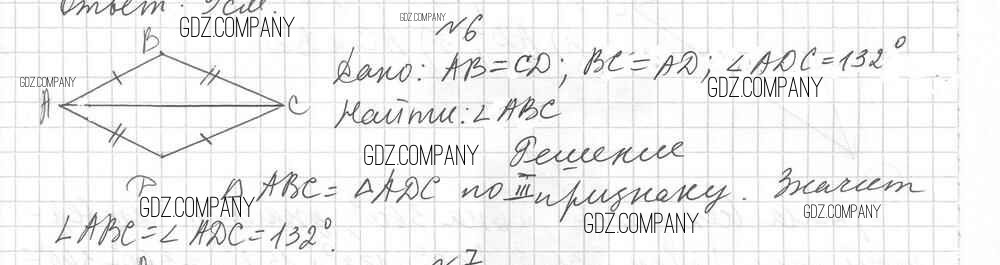 Ответ: 9см.
GDZ.COMPANY
GDZ.COMPANY
№6
B
GDZ.COMPANY
A
C
Дано: AB=CD; BC=AD; ∠ADC=132°
GDZ.COMPANY
Найти: ∠ABC
GDZ.COMPANY
Решение
△ABC = △ADC по III признаку. Значит
GDZ.COMPANY
GDZ.COMPANY
GDZ.COMPANY
∠ABC=∠ADC=132°.
№7